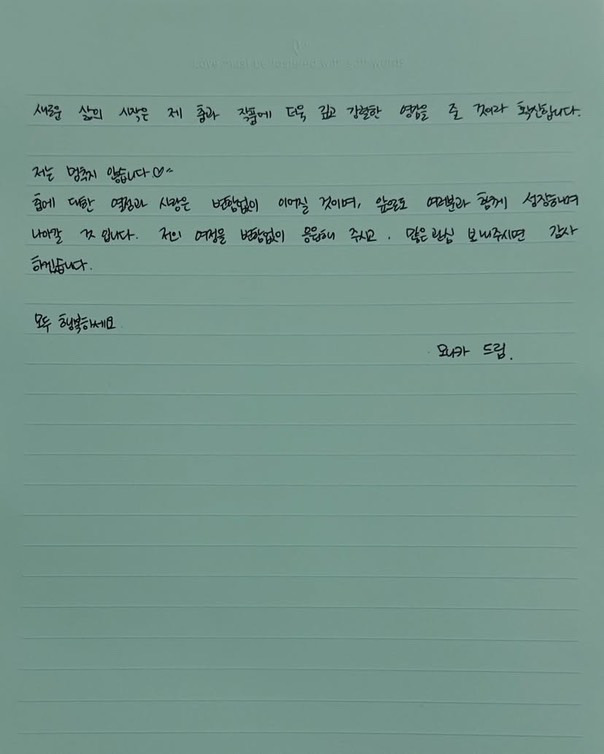 새로운 삶의 시작은 제 춤과 작품에 더욱 깊고 강렬한 영감을 줄 것이라 확신합니다.
저는 멈추지 않습니다♡~
춤에 대한 열정과 사랑은 변함없이 이어질 것이며, 앞으로도 여러분과 함께 성장하며
나아갈 것 입니다. 저의 여정을 변함없이 응원해 주시고, 많은 관심 보내주시면 감사
하겠습니다.
모두 행복하세요.
모니카 드림.